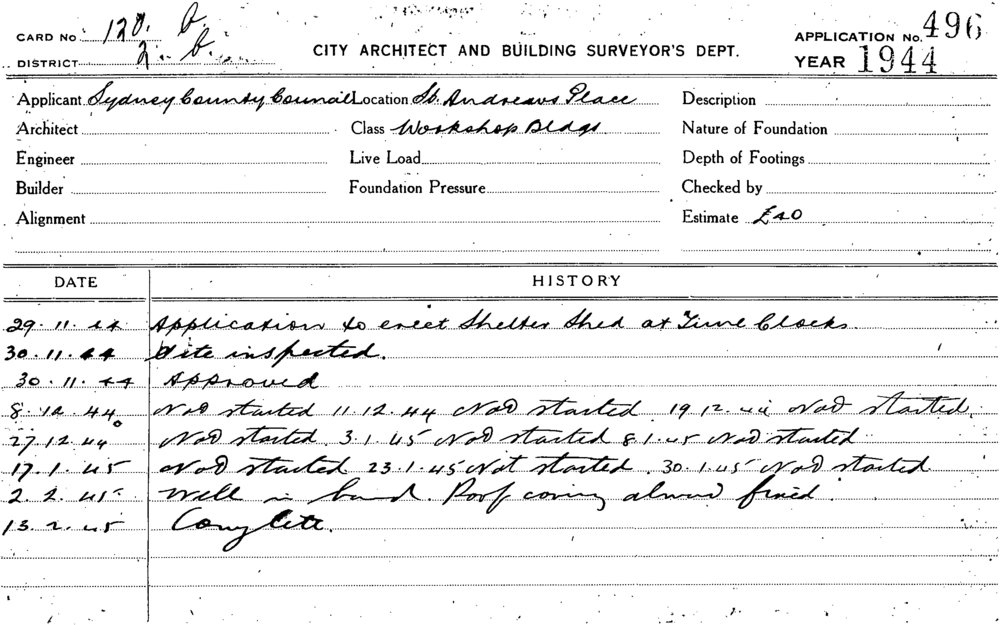 CARD No 120. B.
DISTRICT 2. b.
CITY ARCHITECT AND BUILDING SURVEYOR'S DEPT.
APPLICATION No. 496
YEAR 1944
Applicant Sydney County Council Location St. Andrews Place Description
Architect Class Workshop Bldgs Nature of Foundation
Engineer Live Load Depth of Footings
Builder Foundation Pressure Checked by
Alignment Estimate £40
DATE HISTORY
29.11.44 Application to erect Shelter Shed at Time Clocks
30.11.44 Site inspected.
30.11.44 Approved
8.12.44 Not started 11.12.44 Not started 19.12.44 Not started.
27.12.44 Not started. 3.1.45 Not started 8.1.45 Not started
17.1.45 Not started 23.1.45 Not started. 30.1.45 Not started
2.2.45 Well in hand. Roof almost fixed.
13.2.45 Complete.